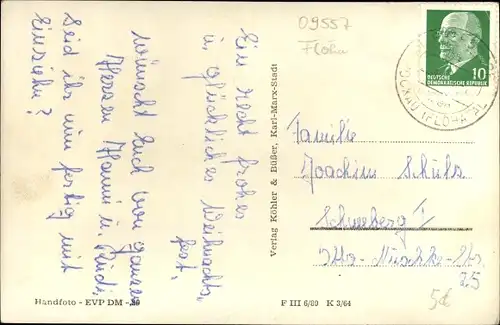 Ein recht frohes
u. glückliches Weihnachts-
fest,
wünscht Euch von ganzem
Herzen Hanni u. Rudi.
Seid ihr nun fertig mit
Einziehn?
Verlag Köhler & Büßer, Karl-Marx-Stadt
09557
Flöha
DEUTSCHE
DEMOKRATISCHE REPUBLIK
10
(FLÖHA
Familie
Joachim Schulz
Schneeberg I
25
Handfoto - EVP DM -,20
F III 6/89 K 3/64